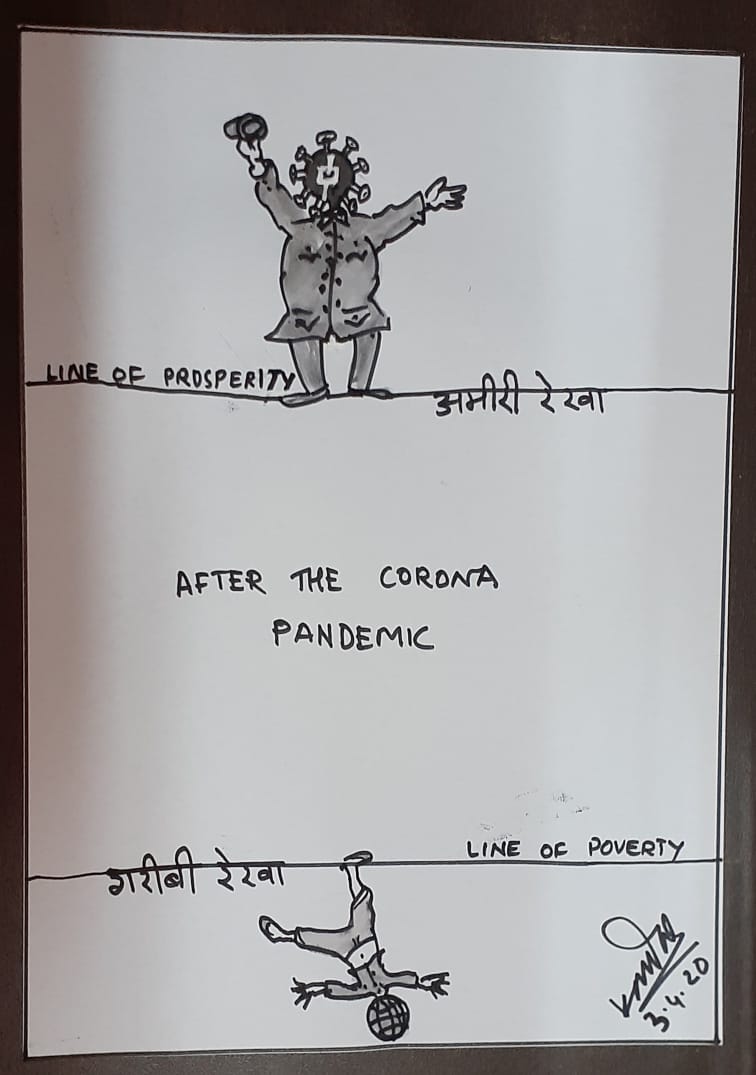 LINE OF PROSPERITY
अमीरी रेखा
AFTER THE CORONA
PANDEMIC
LINE OF POVERTY
गरीबी रेखा
3.4.20